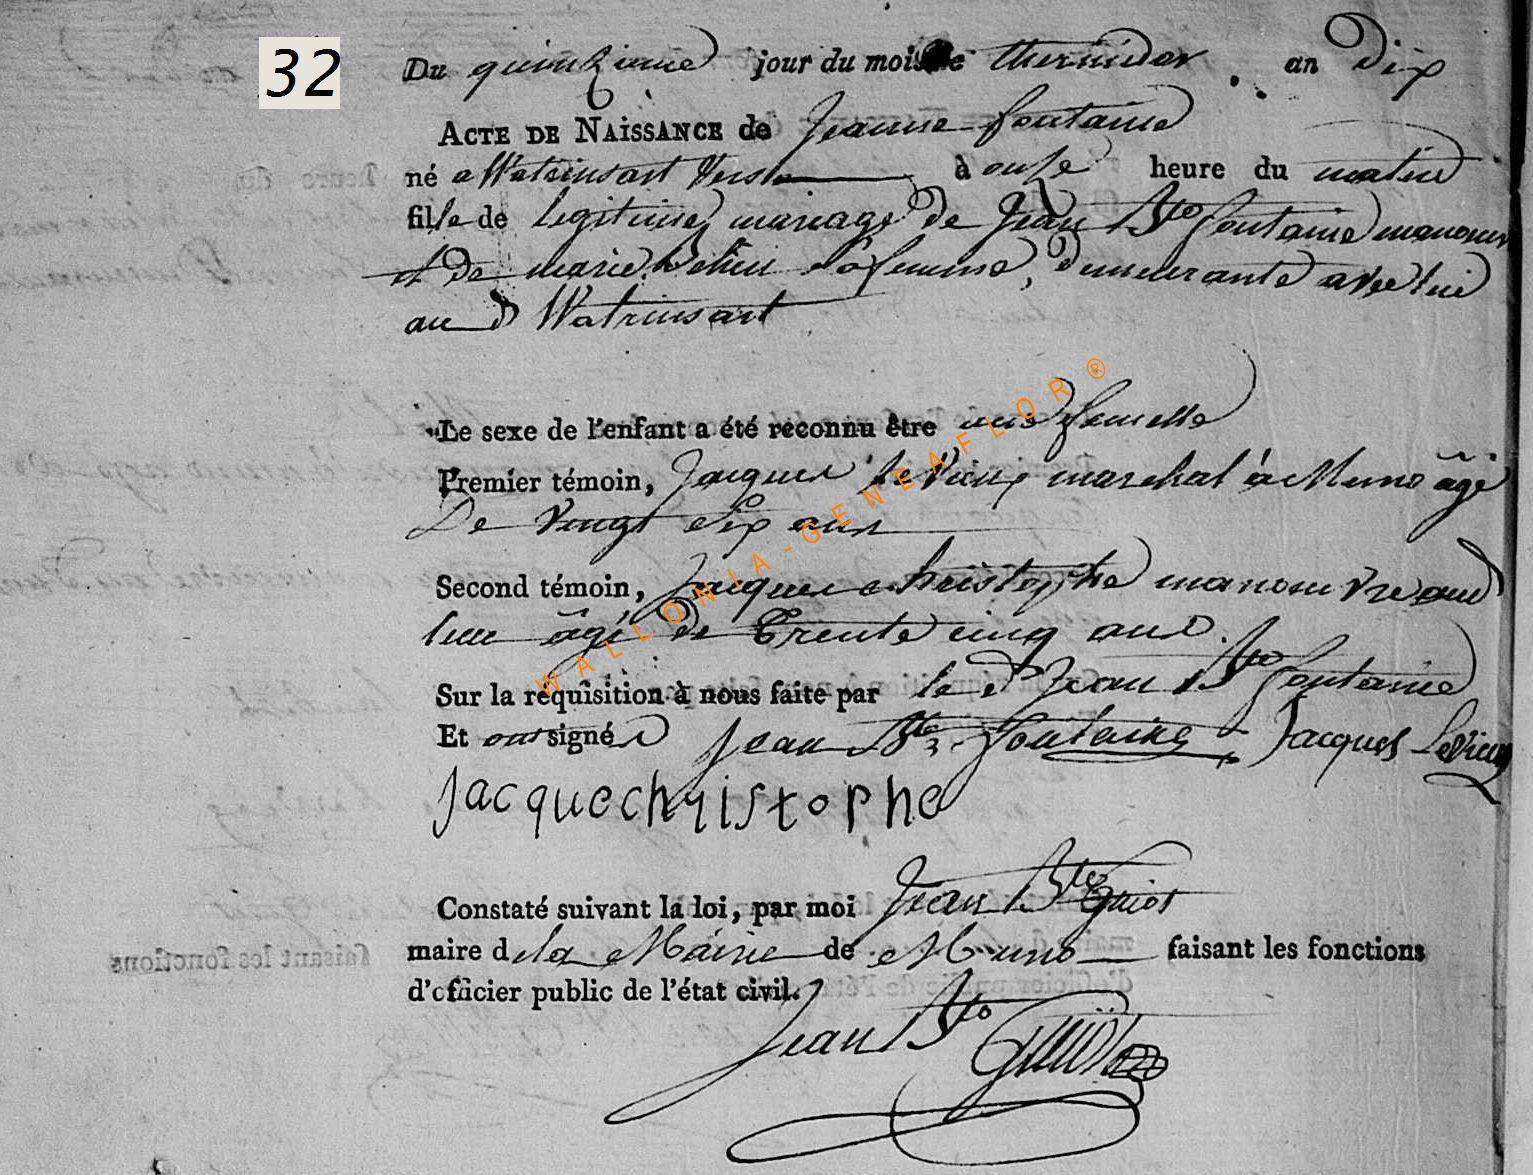 32
Du quinzieme jour du mois de thermidor an dix
ACTE DE NAISSANCE de Jeanne fontaine
né a Watrinsart vers à onse heure du matin
fille de legitime mariage de Jean Bte fontaine manouvre
et de marie sa femme, demeurante avec lui
au d Watrinsart
Le sexe de l'enfant a été reconnu être une femelle
Premier témoin, Jacques Le Vieux marechal à Muno âgé
De vingt six ans
Second témoin, jacques christophe manouvre aud
lieu âgé de Trente cinq ans.
Sur la réquisition à nous faite par le d Jean Bte fontaine
Et ont signé Jean Bte fontaine Jacques LeVieux
jacquechristophe
Constaté suivant la loi, par moi Jean Bte Guiot
maire d la Mairie de Muno faisant les fonctions
d'officier public de l'état civil.
Jean Bte Guiot
WALLONIA-GENEAFLOR®